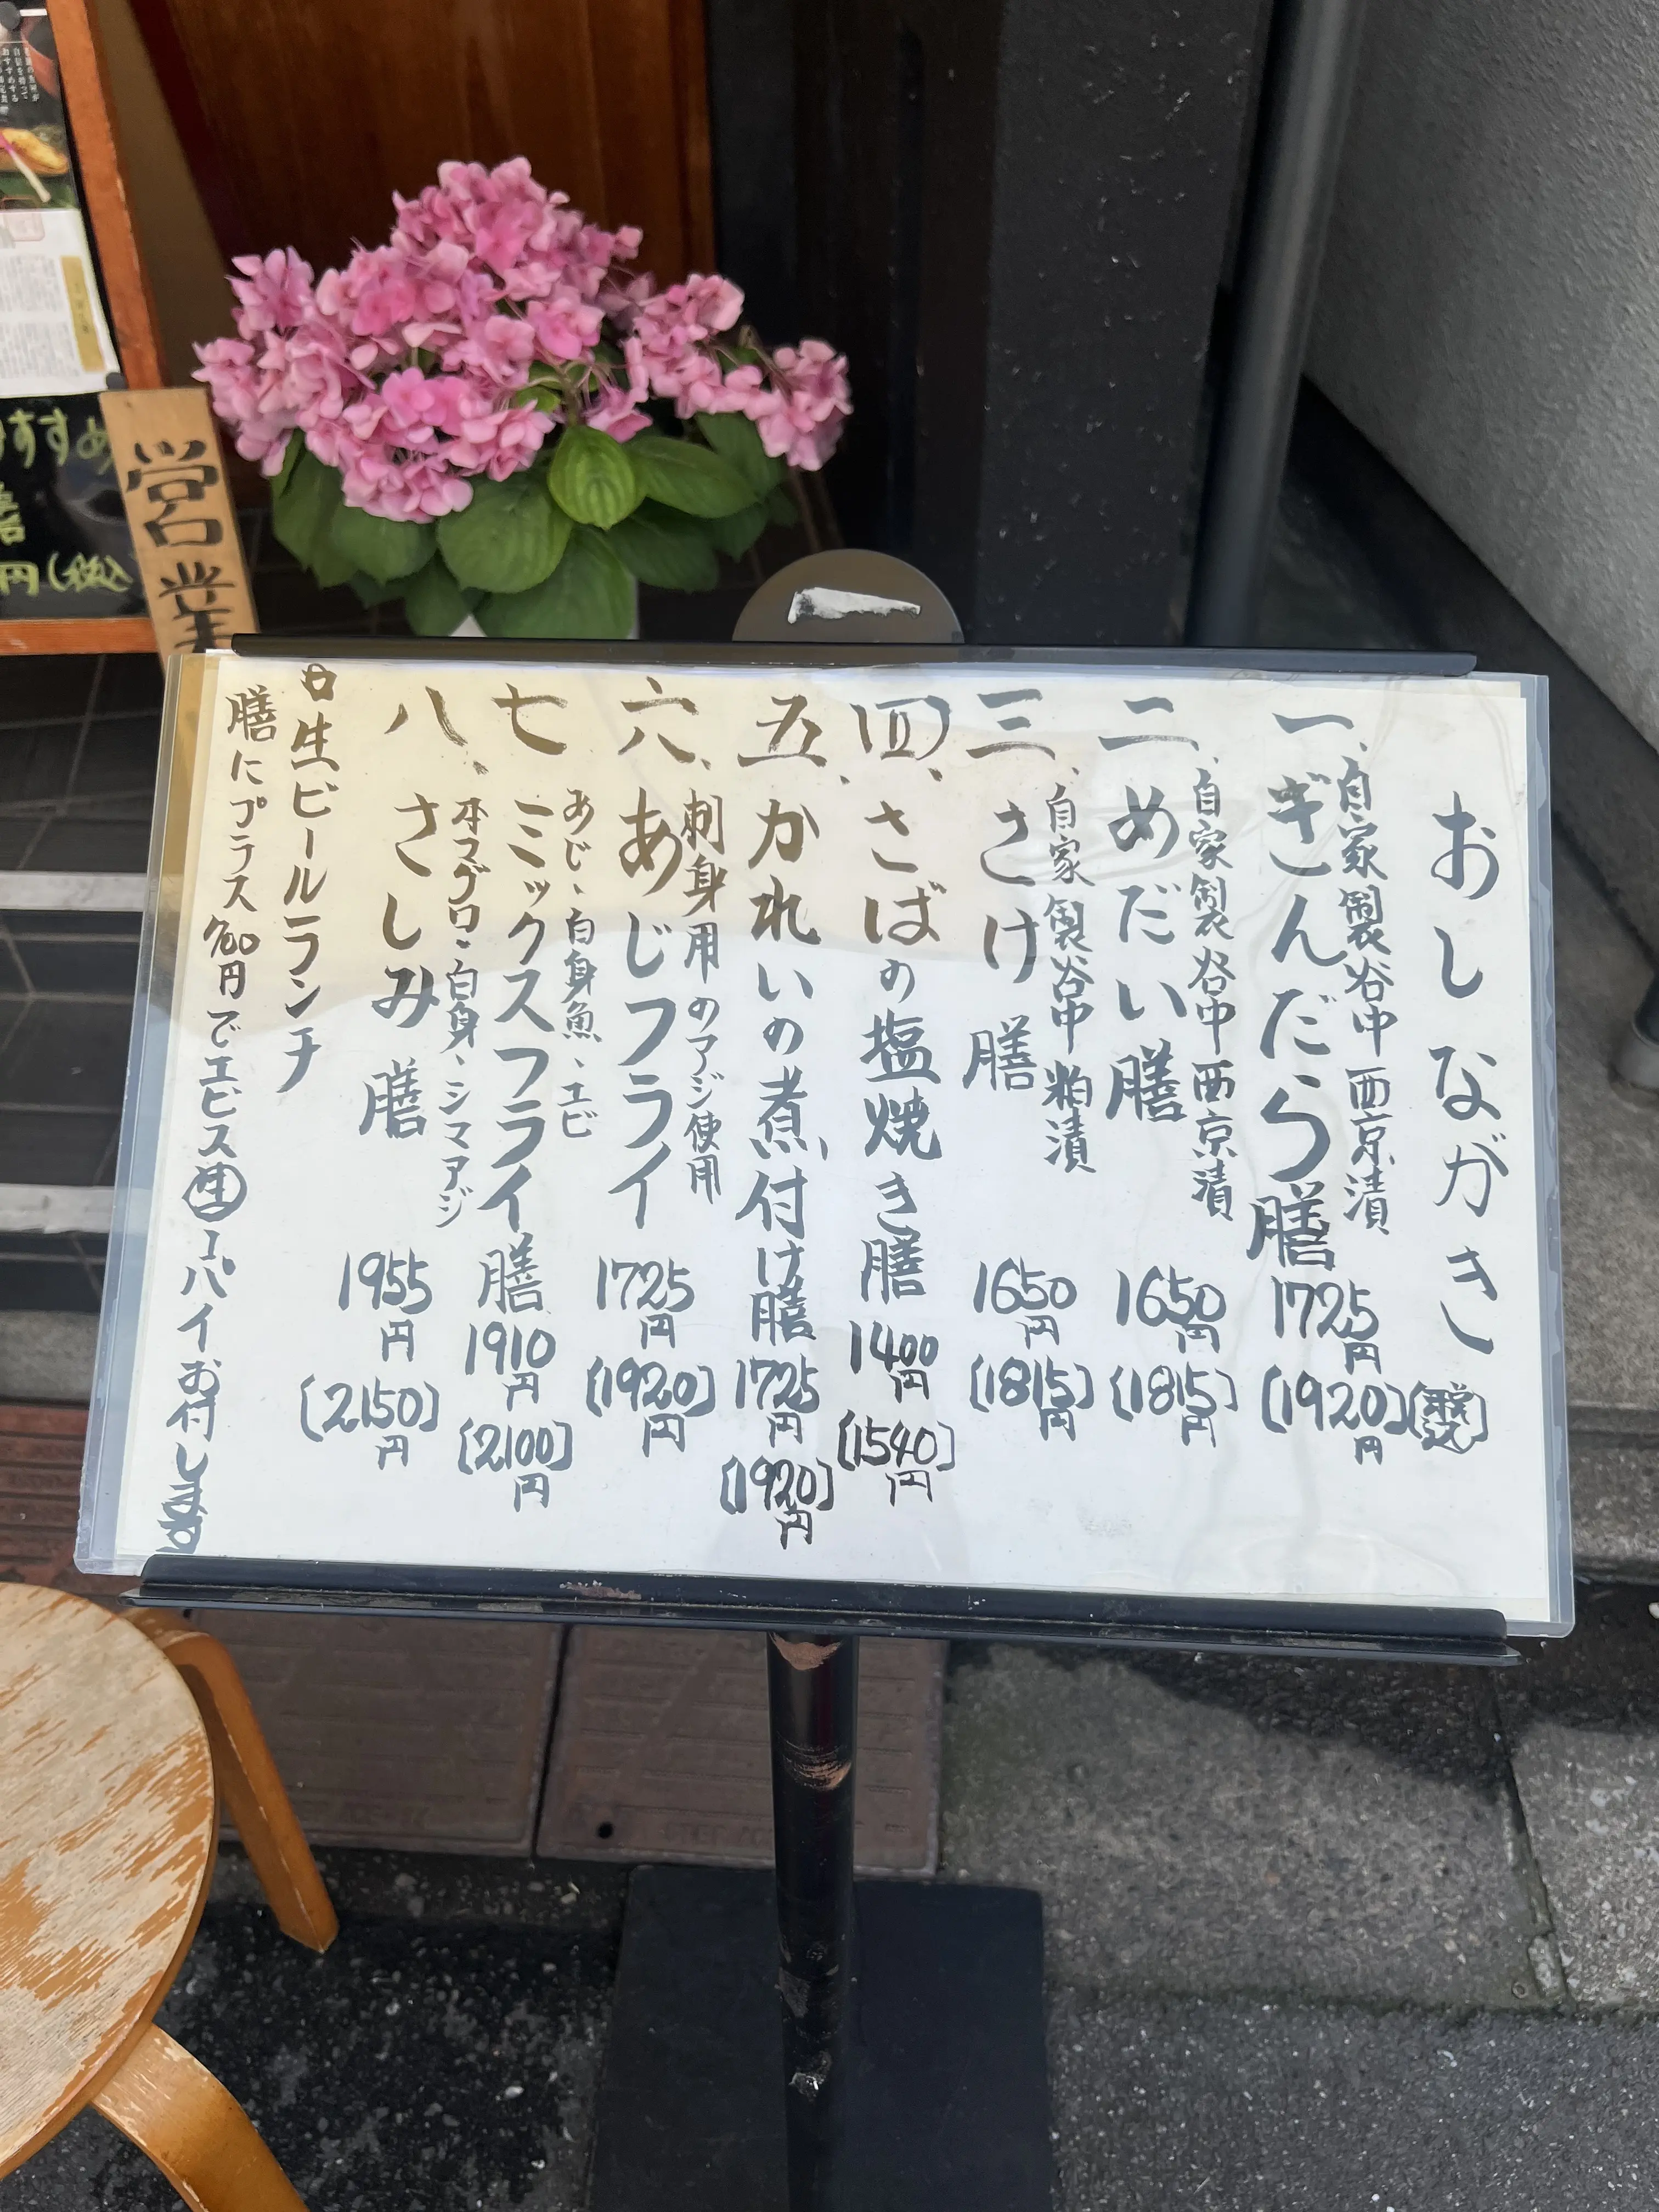 おしながき
自家製谷中西京漬
一、ぎんだら膳 1725円 (1920)円
自家製谷中西京漬
二、めだい膳 1650円 (1815)円
自家製谷中粕漬
三、さけ膳 1650円 (1815)円
四、さばの塩焼き膳 1400円 (1540)円
五、かれいの煮付け膳 1725円 (1920)円
刺身用のアジ使用
六、あじフライ 1725円 (1920)円
あじ、白身魚、エビ
七 ミックスフライ膳 1910円 (2100)円
本マグロ、白身、シマアジ
八、さしみ膳 1955円 (2150)円
生ビールランチ
膳にプラス 円でエビス生1パイお付します
営業
すすめ
円(税込